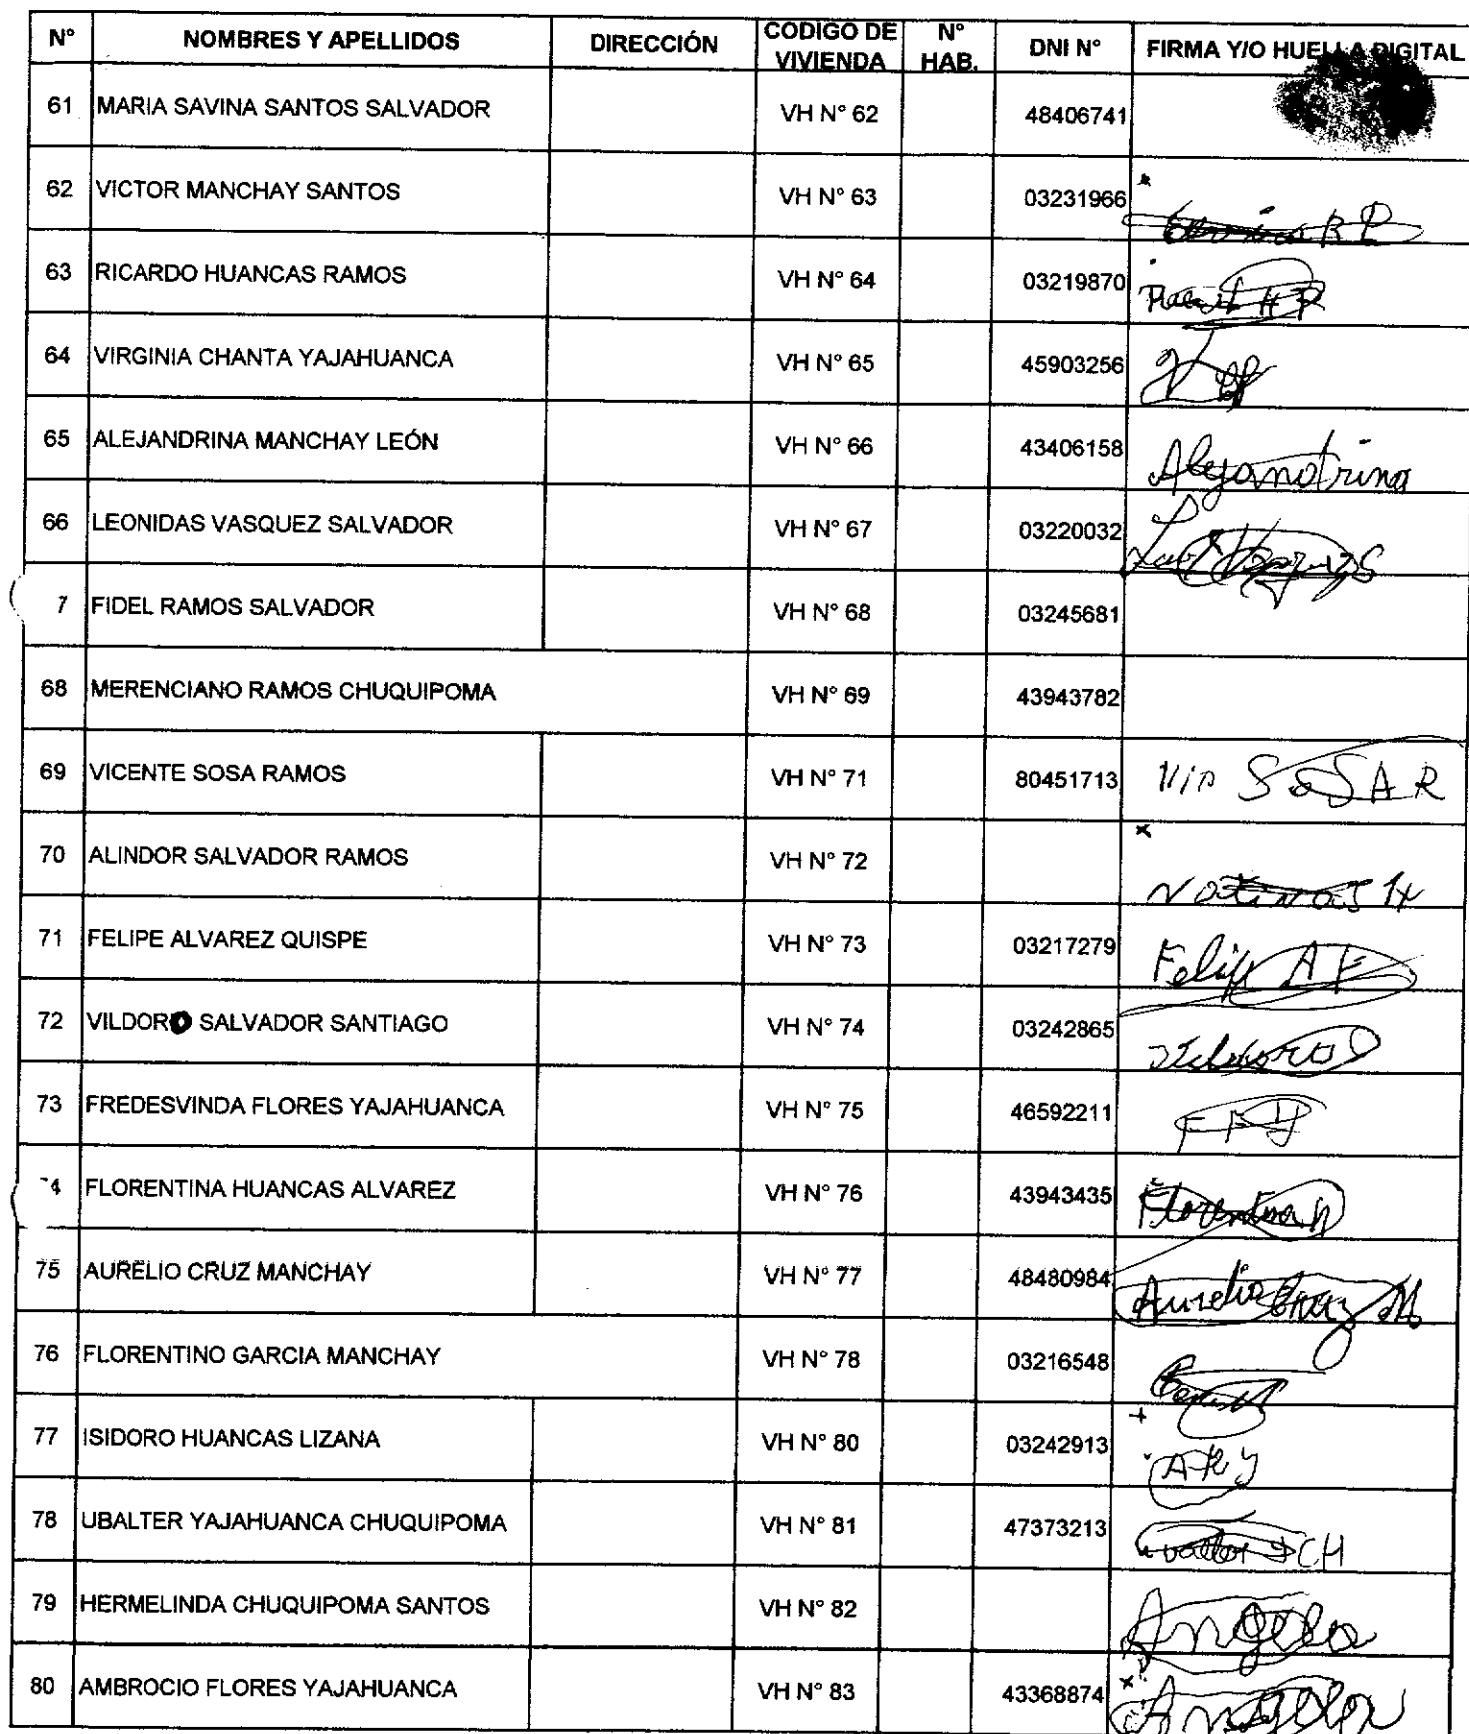 N° NOMBRES Y APELLIDOS DIRECCIÓN CODIGO DE VIVIENDA N° HAB. DNI N° FIRMA Y/O HUELLA DIGITAL
61 MARIA SAVINA SANTOS SALVADOR VH N° 62 48406741
62 VICTOR MANCHAY SANTOS VH N° 63 03231966 R P
63 RICARDO HUANCAS RAMOS VH N° 64 03219870
64 VIRGINIA CHANTA YAJAHUANCA VH N° 65 45903256
65 ALEJANDRINA MANCHAY LEÓN VH N° 66 43406158 Alejandrina
66 LEONIDAS VASQUEZ SALVADOR VH N° 67 03220032
7 FIDEL RAMOS SALVADOR VH N° 68 03245681
68 MERENCIANO RAMOS CHUQUIPOMA VH N° 69 43943782
69 VICENTE SOSA RAMOS VH N° 71 80451713 SOSA R
70 ALINDOR SALVADOR RAMOS VH N° 72
71 FELIPE ALVAREZ QUISPE VH N° 73 03217279 Felip A
72 VILDORO SALVADOR SANTIAGO VH N° 74 03242865
73 FREDESVINDA FLORES YAJAHUANCA VH N° 75 46592211 F F Y
74 FLORENTINA HUANCAS ALVAREZ VH N° 76 43943435 Florentina H
75 AURELIO CRUZ MANCHAY VH N° 77 48480984 Aurelio Cruz M
76 FLORENTINO GARCIA MANCHAY VH N° 78 03216548
77 ISIDORO HUANCAS LIZANA VH N° 80 03242913
78 UBALTER YAJAHUANCA CHUQUIPOMA VH N° 81 47373213 CH
79 HERMELINDA CHUQUIPOMA SANTOS VH N° 82 Angela
80 AMBROCIO FLORES YAJAHUANCA VH N° 83 43368874